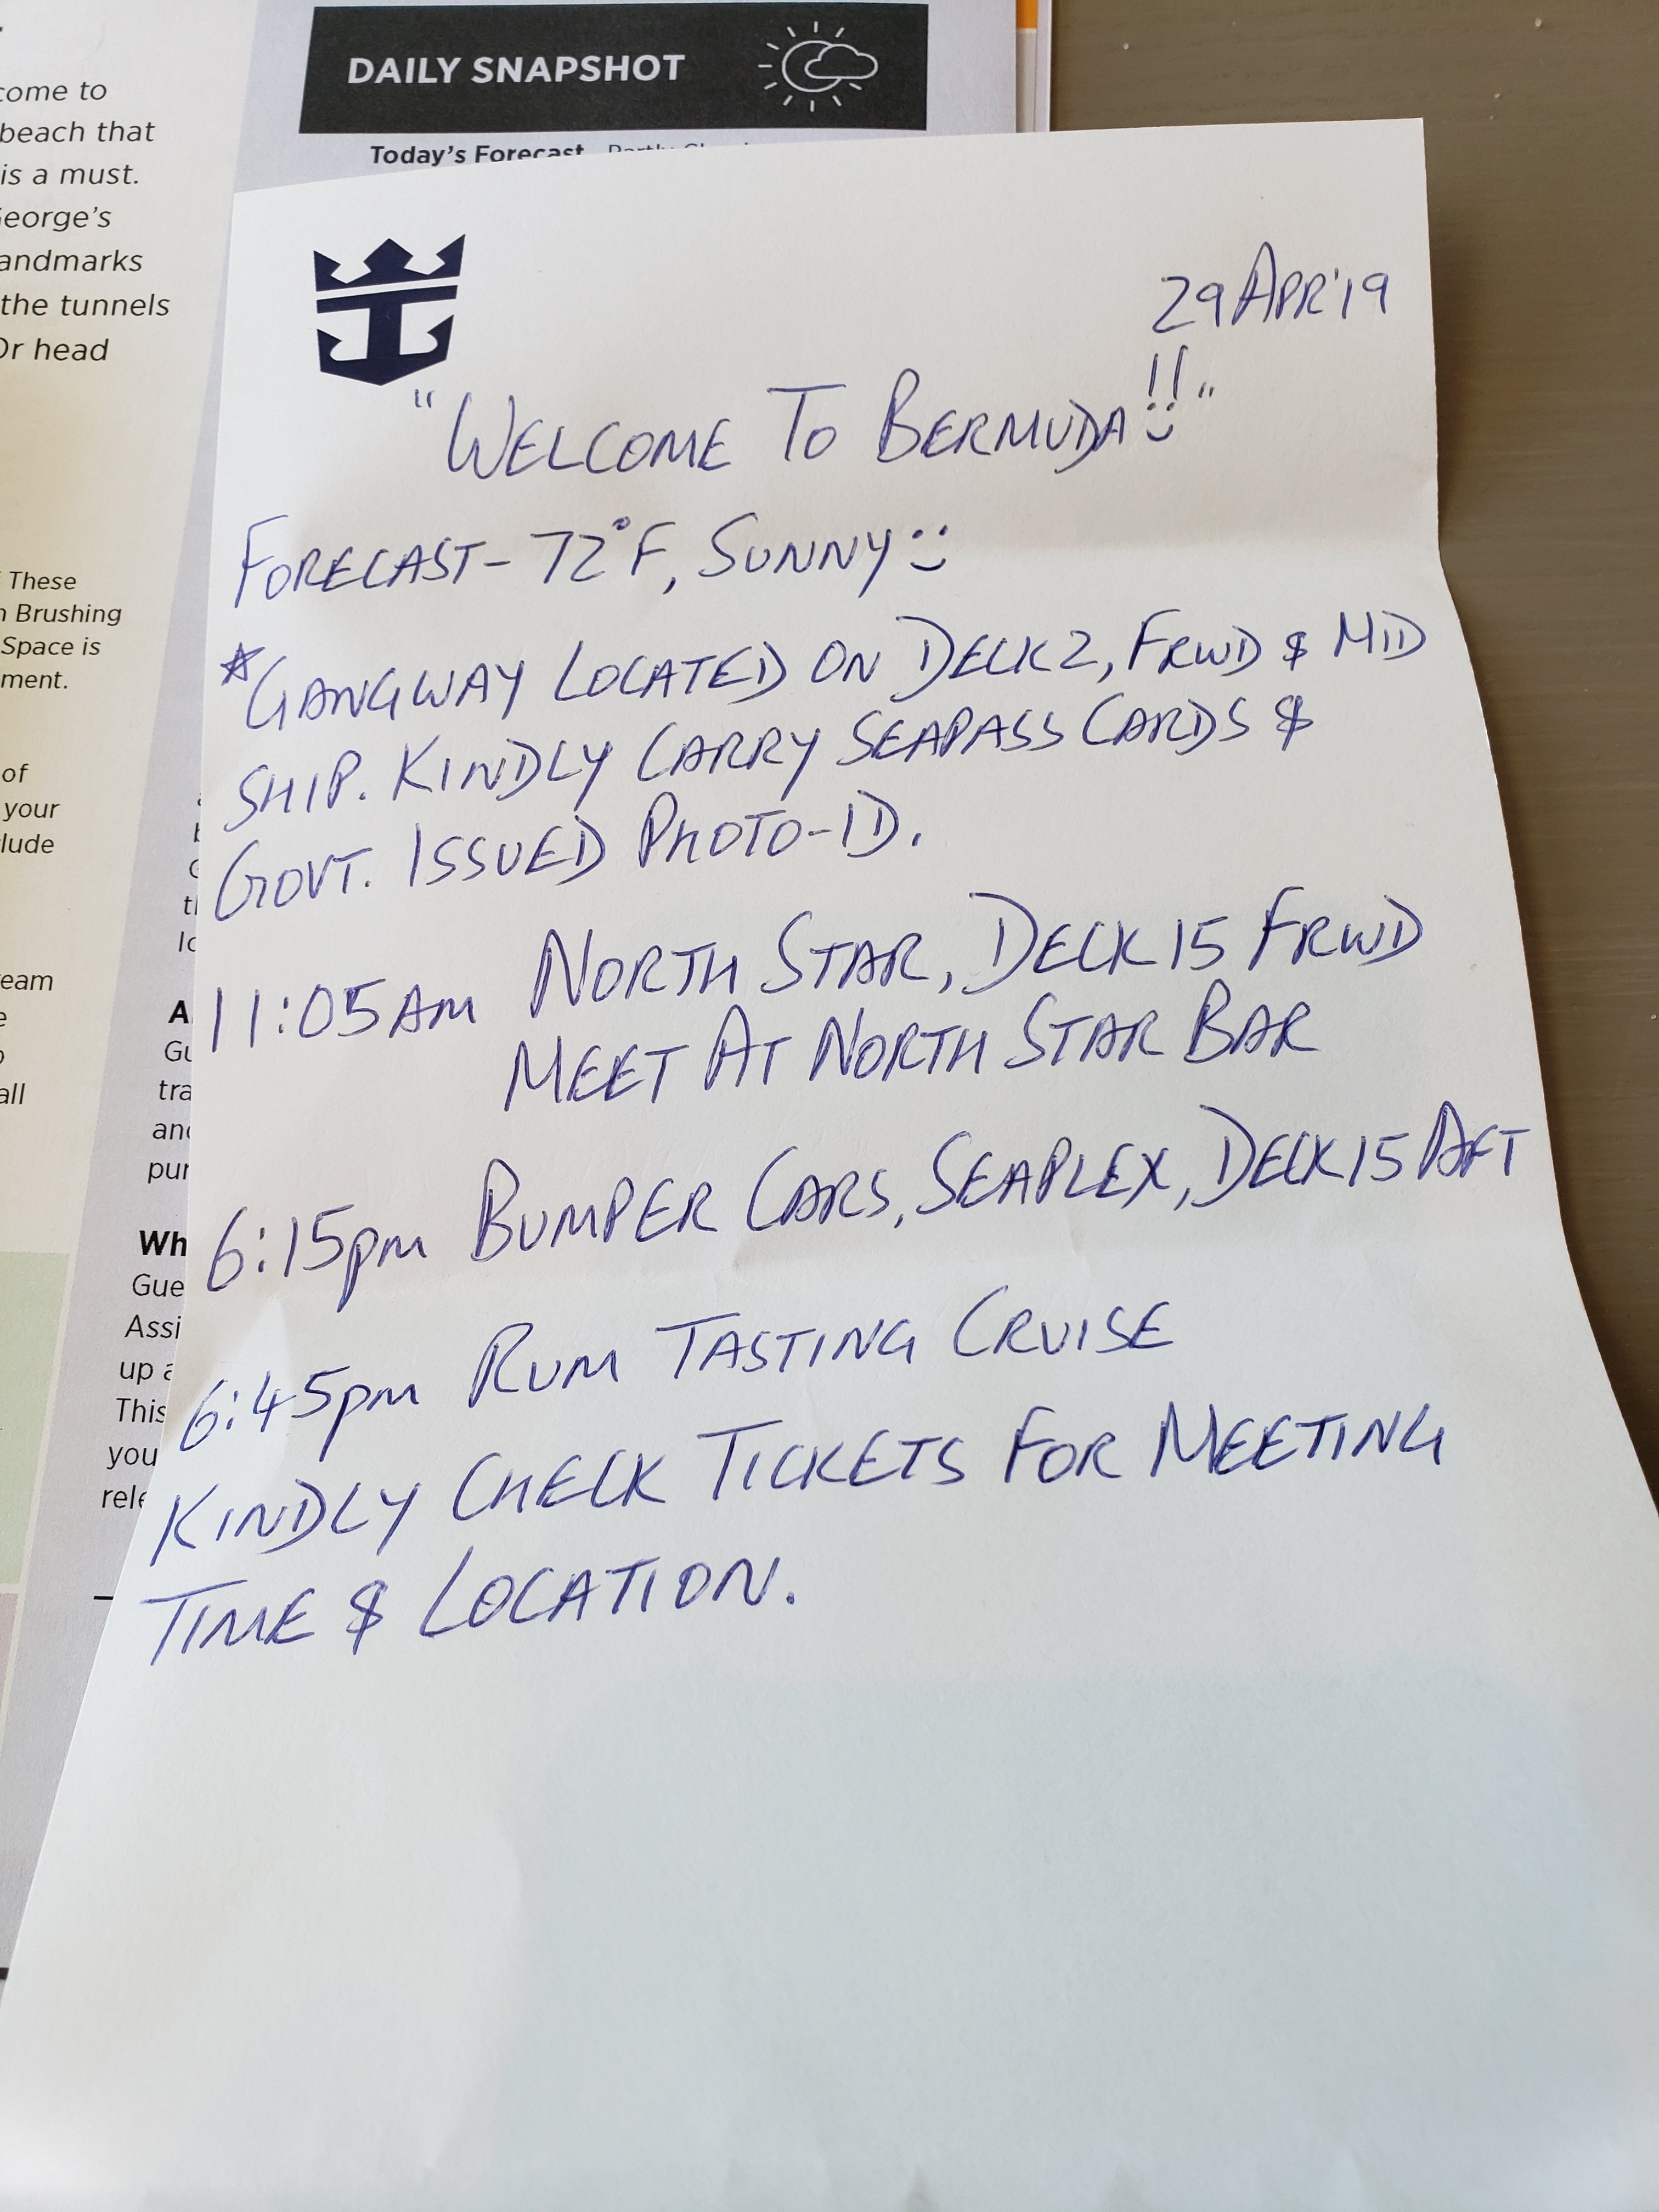 come to
beach that
is a must.
George's
andmarks
the tunnels
Or head
These
Brushing
Space is
ment.
of
your
lude
eam
all
DAILY SNAPSHOT
Today's Forecast
A
Gu
tra
and
pur
Wh
Gue
Assi
up a
This
you
rele
29 APR'19
"WELCOME TO BERMUDA!!"
FORECAST - 72°F, SUNNY
*GANGWAY LOCATED ON DECK 2, FRWD & MID
SHIP. KINDLY CARRY SEAPASS CARDS &
GOVT. ISSUED PHOTO-ID.
11:05AM NORTH STAR, DECK 15 FRWD
MEET AT NORTH STAR BAR
6:15pm BUMPER CARS, SEAPLEX, DECK 15 AFT
6:45pm RUM TASTING CRUISE
KINDLY CHECK TICKETS FOR MEETING
TIME & LOCATION.